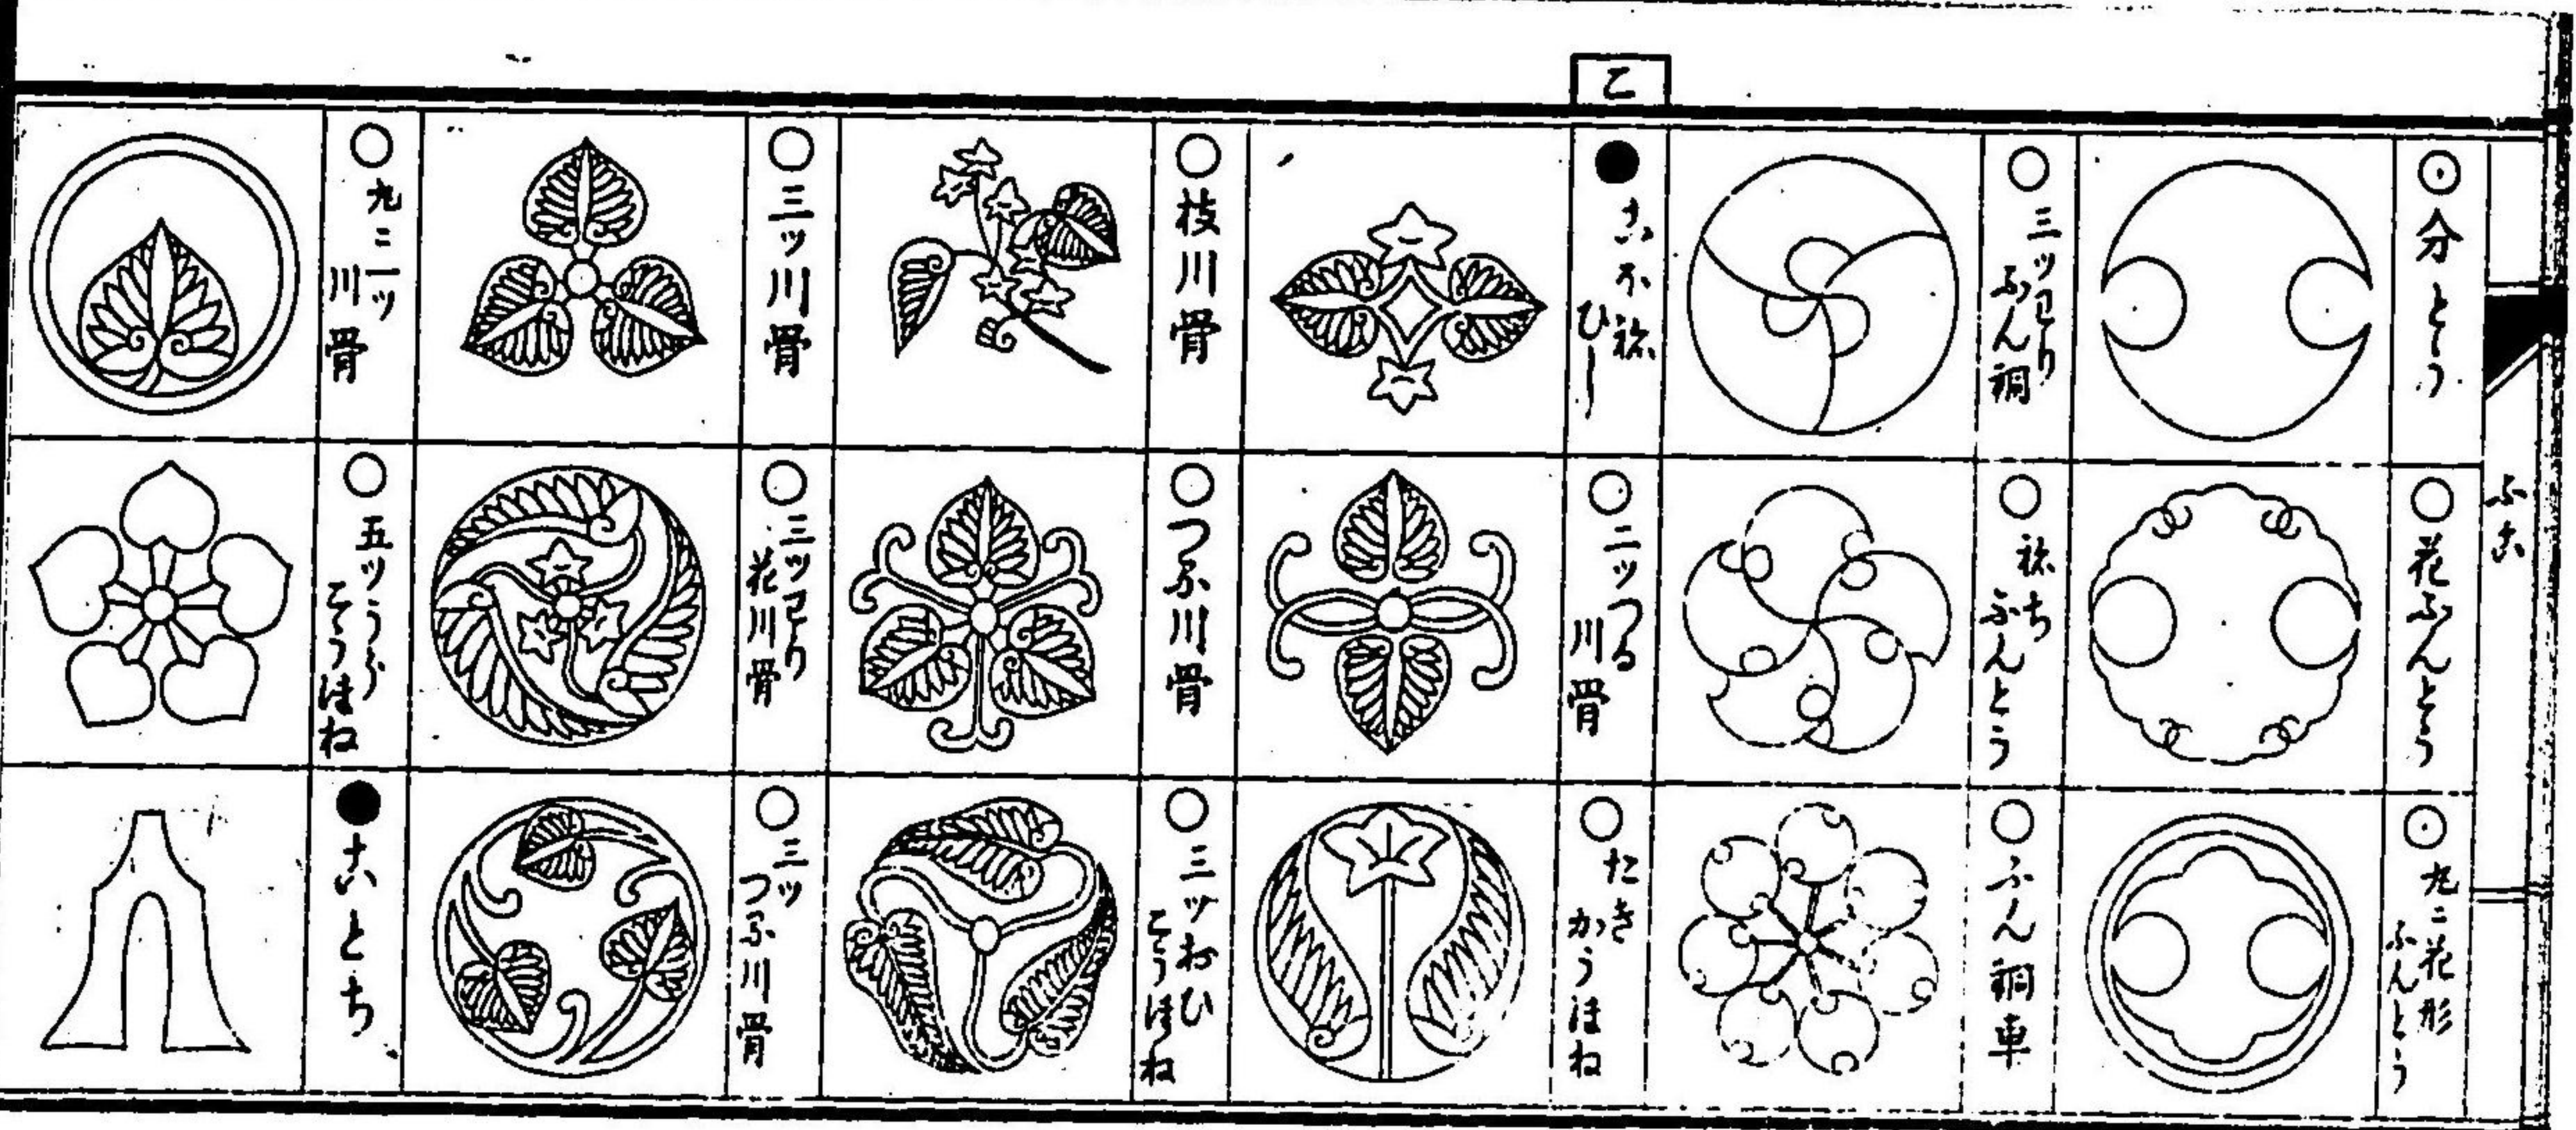 乙
ふこ
分とう
花ふんとう
丸ニ花形
ふんとう
三ツわり
ふん銅
ねぢ
ふんとう
ふん銅車
ひし
二ツつる
川骨
たき
かうほね
枝川骨
つる川骨
三ツおひ
こうほね
三ツ川骨
三ツわり
花川骨
三ツ
つる川骨
丸ニ一ツ
川骨
五ツうら
こうほね
ことち